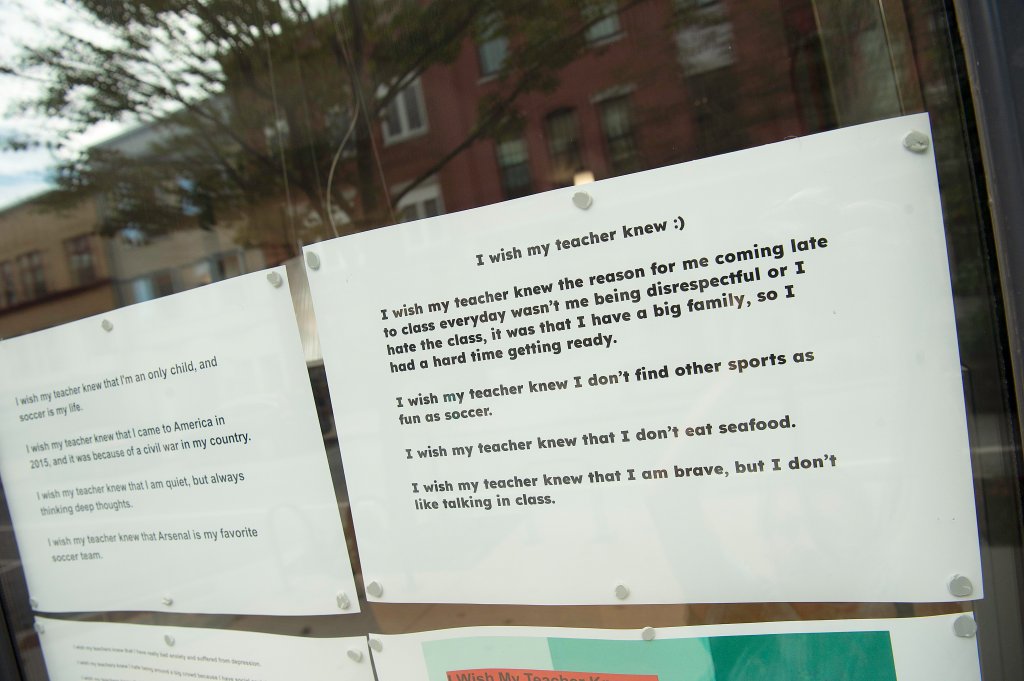 I wish my teacher knew that I'm an only child, and
soccer is my life.
I wish my teacher knew that I came to America in
2015, and it was because of a civil war in my country.
I wish my teacher knew that I am quiet, but always
thinking deep thoughts.
I wish my teacher knew that Arsenal is my favorite
soccer team.
I wish my teacher knew :)
I wish my teacher knew the reason for me coming late
to class everyday wasn't me being disrespectful or I
hate the class, it was that I have a big family, so I
had a hard time getting ready.
I wish my teacher knew I don't find other sports as
fun as soccer.
I wish my teacher knew that I don't eat seafood.
I wish my teacher knew that I am brave, but I don't
like talking in class.
I wish my teachers knew that I have really bad anxiety and suffered from depression.
I wish my teachers knew I hate being around a big crowd because I have social
I Wish My Teacher